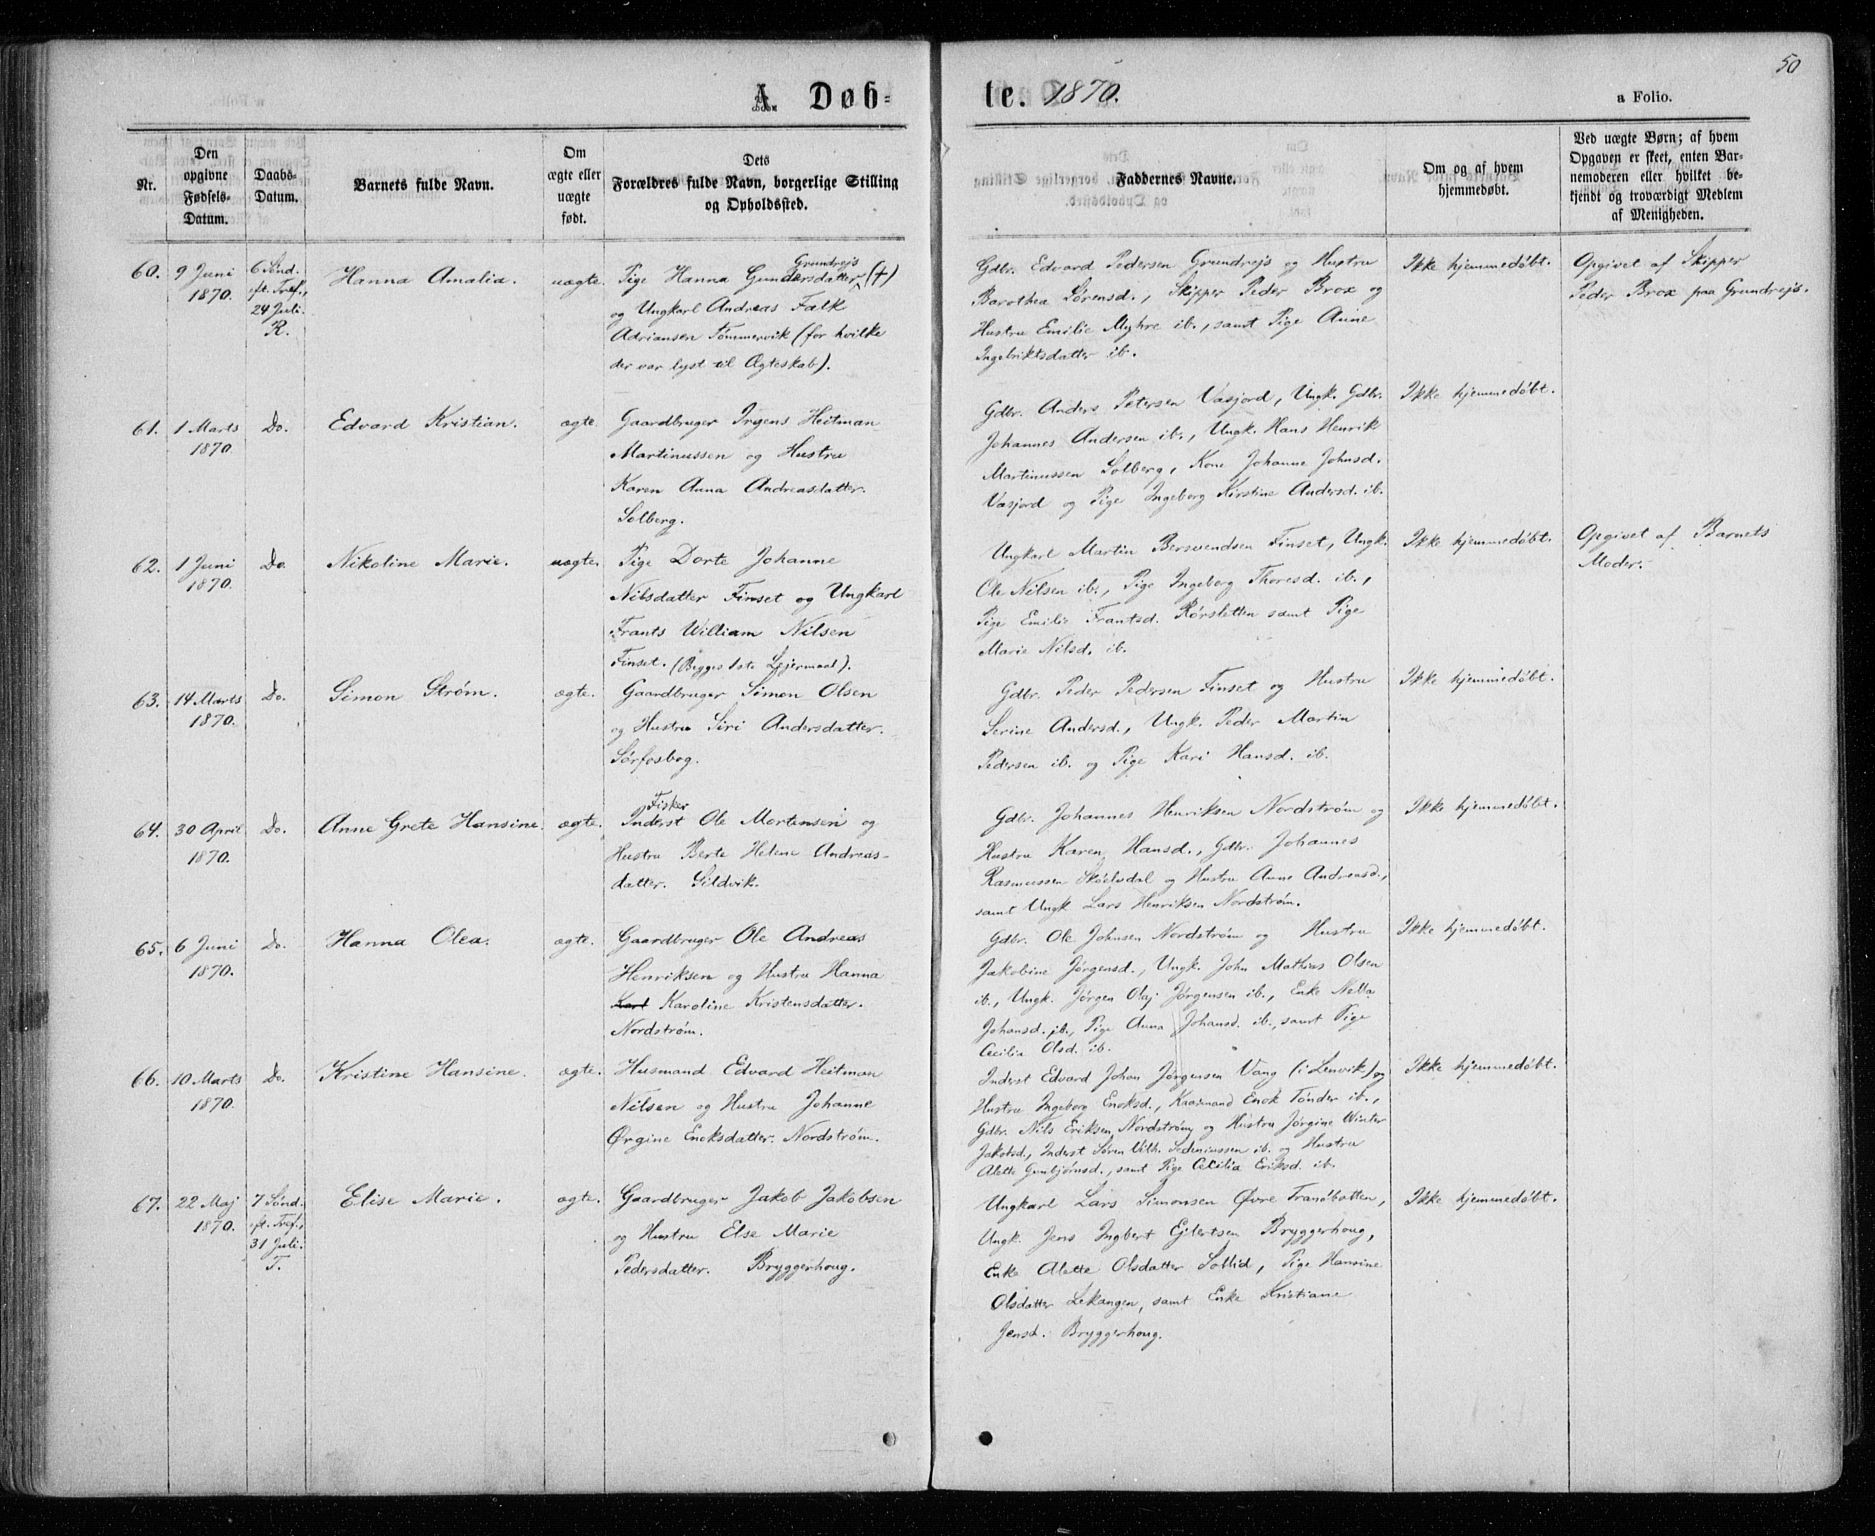 50
A. Døb-
te. 1870.
a Folio.
Nr.
Den
opgivne
Fødsels-
Datum.
Daabs-
Datum.
Barnets fulde Navn.
Om
ægte eller
uægte
født.
Dets
Forældres fulde Navn, borgerlige Stilling
og Opholdssted.
Faddernes Navne.
Om og af hvem
hjemmedøbt.
Ved uægte Børn; af hvem
Opgaven er skeet, enten Bar-
nemoderen eller hvilket be-
kjendt og troværdigt Medlem
af Menigheden.
60.
9 Juni
1870.
6 Sønd.
eft. Tref.,
24 Juli.
R.
Hanna Amalia.
uægte.
Grundrejs
Pige Hanna Gundersdatter (+)
og Ungkarl Andreas Falk
Adriansen Tömmervik (for hvilke
der var lyst til Ægteskab).
Gdbr. Edvard Pedersen Grundrejs og Hustru
Barothea Sørensd., Skipper Peder Brox og
Hustru Emilie Myhre ib., samt Pige Anne
Ingebriktsdatter ib.
Ikke hjemmedøbt.
Opgivet af Skipper
Peder Brox paa Grundrejs.
61.
1 Marts
1870.
Do.
Edvard Kristian.
ægte.
Gaardbruger Irgens Heitman
Martinussen og Hustru
Karen Anna Andreasdatter.
Solberg.
Gdbr. Anders Petersen Vasjord, Ungk. Gdbr.
Johannes Andersen ib., Ungk. Hans Henrik
Martinussen Solberg, Kone Johanne Johnsd.
Vasjord og Pige Ingeborg Kirstine Andersd. ib.
Ikke hjemmedøbt.
62.
1 Juni
1870.
Do.
Nikoline Marie.
uægte.
Pige Dorte Johanne
Nilsdatter Finset og Ungkarl
Frants William Nilsen
Finset. (Begges 1ste Lejermaal).
Ungkarl Martin Bersvendsen Finset, Ungk.
Ole Nilsen ib., Pige Ingeborg Thoresd. ib.,
Pige Emilie Frantsd. Rørsletten samt Pige
Marie Nilsd. ib.
Ikke hjemmedøbt.
Opgivet af Barnets
Moder.
63.
14 Marts
1870.
Do.
Simon Strøm.
ægte.
Gaardbruger Simon Olsen
og Hustru Siri Andersdatter.
Sørfosbog.
Gdbr. Peder Pedersen Finset og Hustru
Serine Andersd., Ungk. Peder Martin
Pedersen ib. og Pige Kari Hansd. ib.
Ikke hjemmedøbt.
64.
30 April
1870.
Do.
Anne Grete Hansine.
ægte.
Fisker
Inderst Ole Mortensen og
Hustru Berte Helene Andreas-
datter. Gildvik.
Gdbr. Johannes Henriksen Nordstrøm og
Hustru Karen Hansd., Gdbr. Johannes
Rasmussen og Hustru Anne Andreasd.,
samt Ungk. Lars Henriksen Nordstrøm.
Ikke hjemmedøbt.
65.
6 Juni
1870.
Do.
Hanna Olea.
ægte.
Gaardbruger Ole Andreas
Henriksen og Hustru Hanna
Karl Karoline Kristensdatter.
Nordstrøm.
Gdbr. Ole Johnsen Nordstrøm og Hustru
Jakobine Jørgensd., Ungk. John Mathias Olsen
ib., Ungk. Jørgen Olaj Jørgensen ib., Enke Netta
Johansd. ib., Pige Anna Johansd. ib., samt Pige
Cecilia Olsd. ib.
Ikke hjemmedøbt.
66.
10 Marts
1870.
Do.
Kristine Hansine.
ægte.
Husmand Edvard Heitman
Nilsen og Hustru Johanne
Ørgine Enoksdatter. Nordstrøm.
Inderst Edvard Johan Jørgensen Vang (i Lenvik) og
Hustru Ingeborg Enoksd., Kaarmand Enok Tønder ib.,
Gdbr. Nils Eriksen Nordstrøm og Hustru Jørgine Winter
Jakobsd., Inderst Søren Vilh. Sedeniussen ib. og Hustru
Alette Gunbjørnsd., samt Pige Cecilia Eriksd. ib.
Ikke hjemmedøbt.
67.
22 Maj
1870.
7 Sønd.
eft. Tref.,
31 Juli.
T.
Elise Marie.
ægte.
Gaardbruger Jakob Jakobsen
og Hustru Else Marie
Pedersdatter. Bryggerhoug.
Ungkarl Lars Simonsen Øvre Tranöbotten,
Ungk. Jens Ingbert Ejlertsen Bryggerhoug,
Enke Alette Olsdatter Sollid, Pige Hansine
Olsdatter Lekangen, samt Enke Kristiane
Jensd. Bryggerhoug.
Ikke hjemmedøbt.